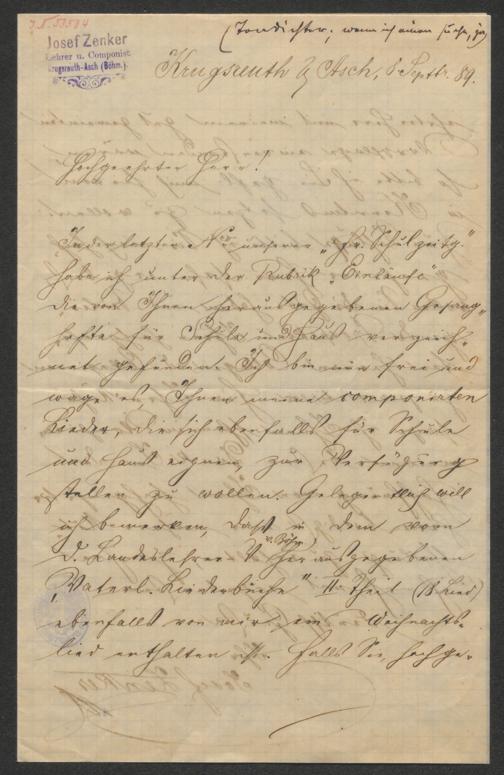 J. N. 53584
(Tondichter; wenn ich einen suche,
Josef Zenker
Lehrer u. Componist
Krugsreuth-Asch (Böhm.)
Krugsreuth b/ Asch, 8 Septbr. 89.
Hochgeehrter Herr!
In der letzten Nro unserer „fr. Schulzeitg."
habe ich unter der Rubrik „Einläufe"
die von Ihnen herausgegebenen Gesang„
hefte für Schule und Haus verzeich„
net gefunden. Ich bin nun so frei und
wage es Ihnen meine componirten
Lieder, die sich ebenfalls für Schule
und Haus eignen, zur Verfügung
stellen zu wollen. Gelegentlich will
ich bemerken, daß in dem vom
d. Landeslehrer-V. v. Böhm. herausgegebenen
„Vaterl. Liederbuche" II. Theil (18 Lied)
ebenfalls von mir ein Weihnachts-
lied enthalten ist. Falls Sie, hochge-